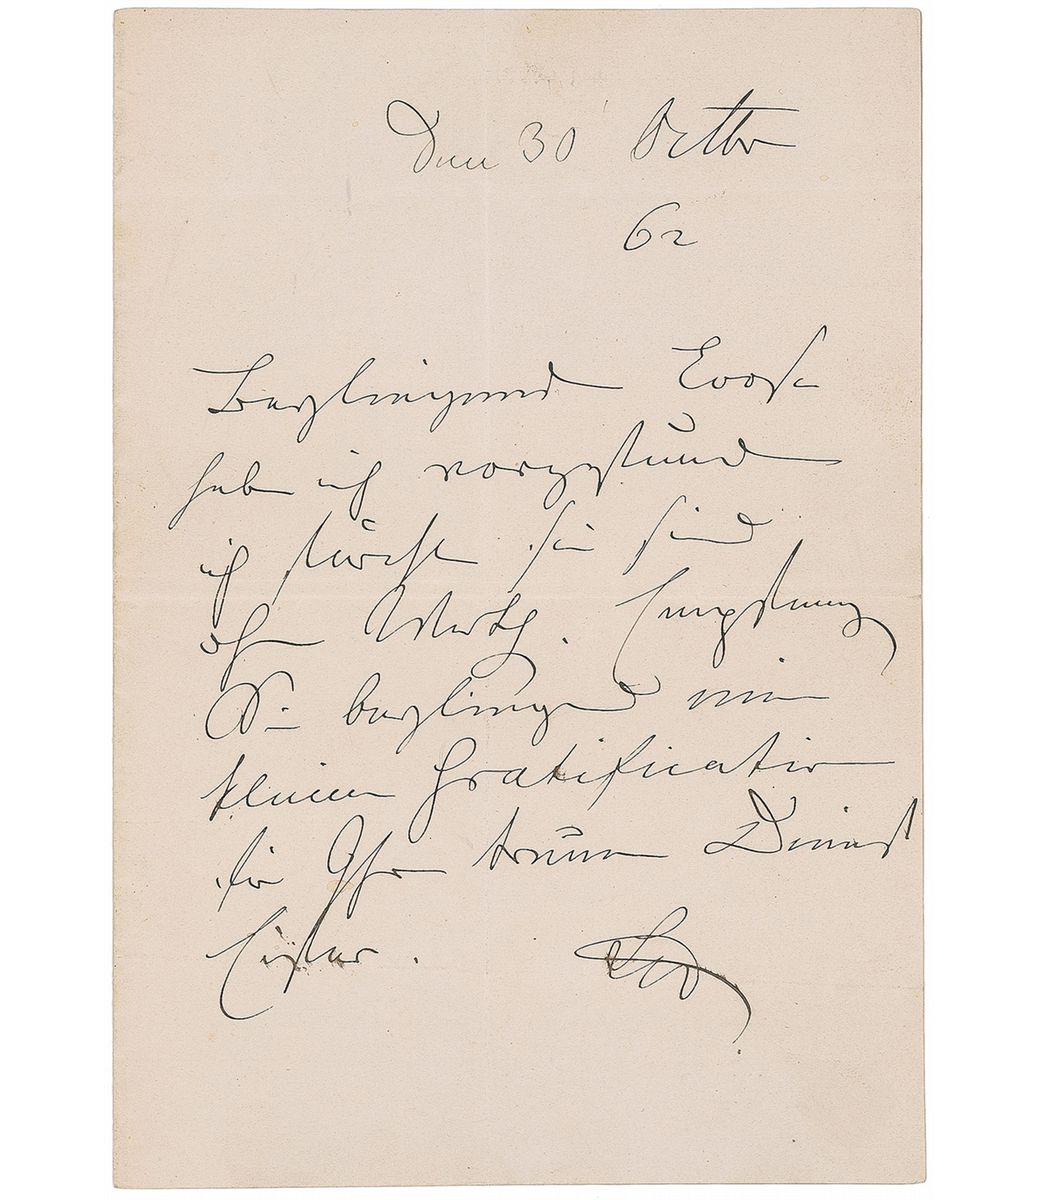 Den 30 Octbr
62
Beyliegende Loose
habe ich vorgefunden
ich fürchte sie sind
ohne Werth. Empfangen
Sie beyliegend eine
kleine Gratification
für Ihren treuen Dienst
Eifer.